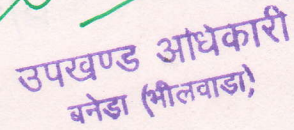 उपखण्ड अधिकारी
बनेडा (भीलवाडा)